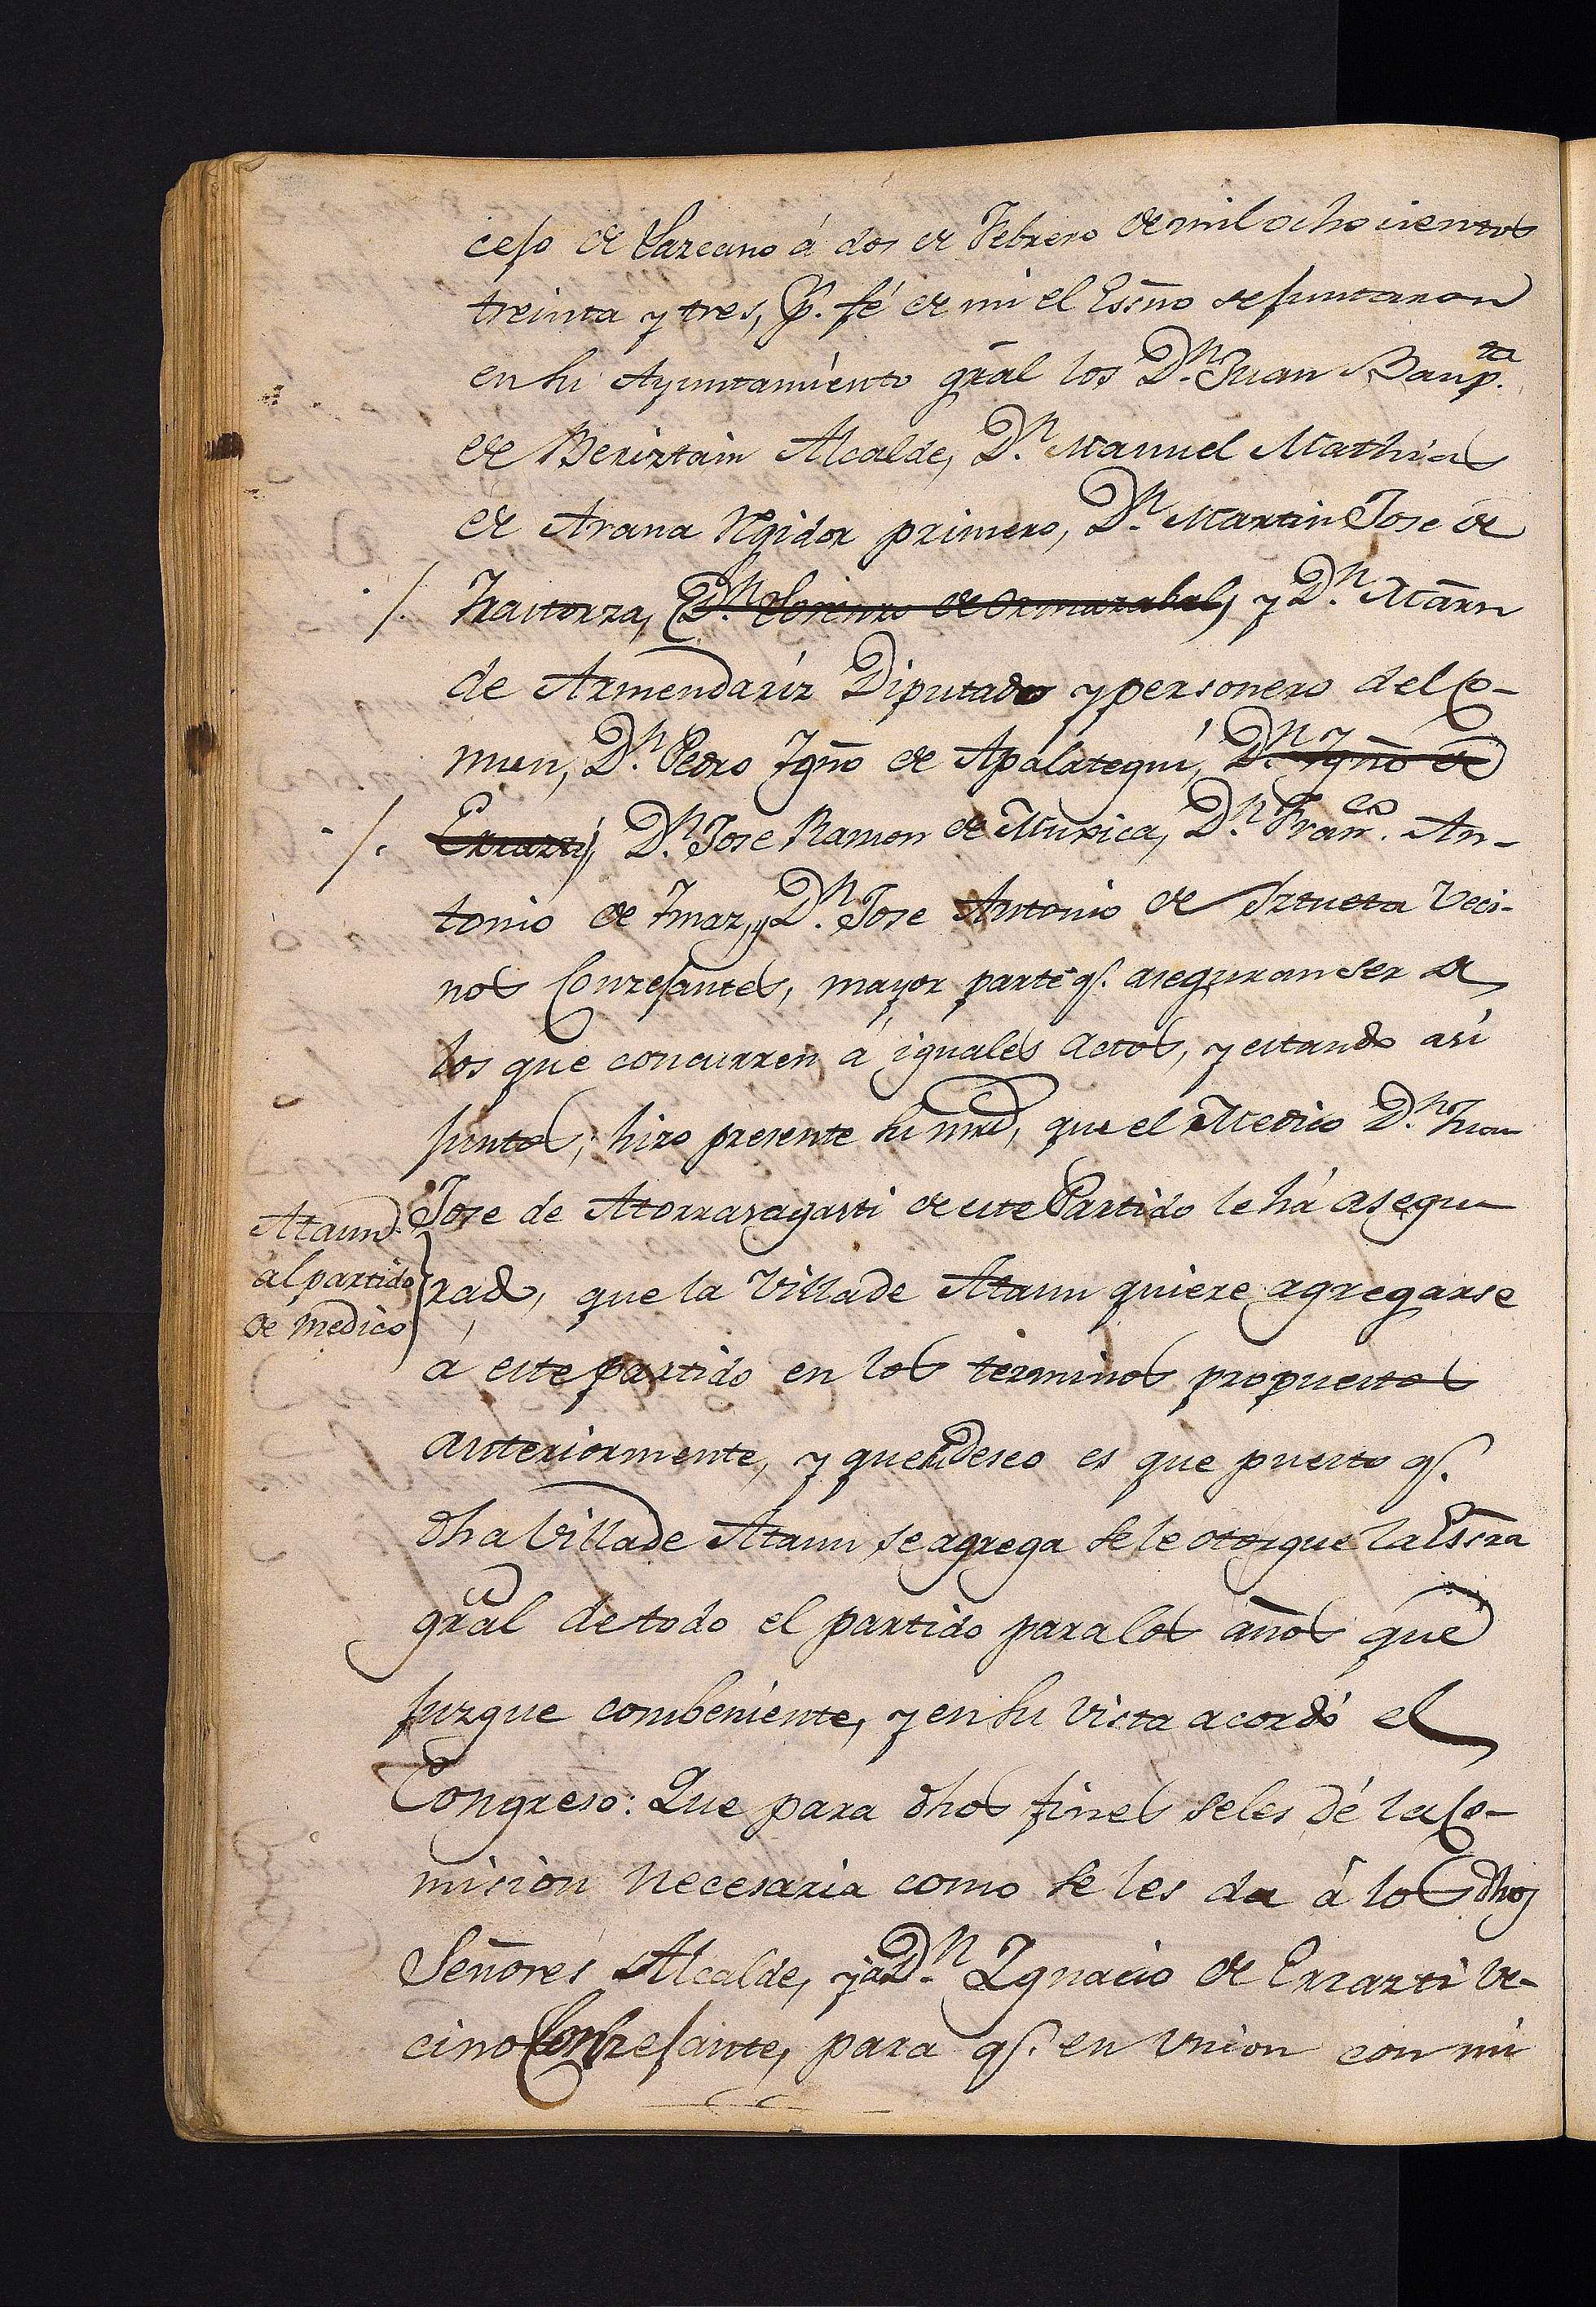 cejo de Lazcano á dos de Febrero de mil ochocientos
treinta y tres, p.r fé de mi el Esc̃no se juntaron
en su Ayuntamiento gr̃al los D.n Juan Baup.ta
de Beriztain Alcalde, D.n Manuel Mathias
de Arana Rejidor primero, D.n Martin Jose de
./. Iraitorza, (D.n Lorenzo de Ormazabal) y D.n Mãrn
de Armendariz Diputado y personero del Co-
mun, D.n Pedro Ygñ̃o de Apalategui, D.n Ygñ̃o de
./. Errazti, D.n Jose Ramon de Muxica, D.n Fran.co An-
tonio de Ymaz, y D.n Jose Antonio de Iztueta Veci-
nos Conzejantes, mayor parte q.e aseguran ser de
los que concurren á iguales actos, y estando asi
juntos, hizo presente su mrd, que el Medico D.n Juan
Ataun
al partido
de medico
Jose de Atorrasagasti de este Partido le há asegu
rado, que la Villa de Ataun quiere agregarse
á este partido en los terminos propuestos
anteriormente, y que su deseo es que puesto q.e
dha Villa de Ataun se agrega se le otorgue la Escra
gr̃al de todo el partido para los años que
juzgue combeniente, y en su vista acordó el
Congreso: Que para dhos fines se les dé la Co-
mision necesaria como se les da á los dhos
Señores Alcalde, y a D.n Ygnacio de Errazti Ve-
cino Conzejante, para q.e en union con mi